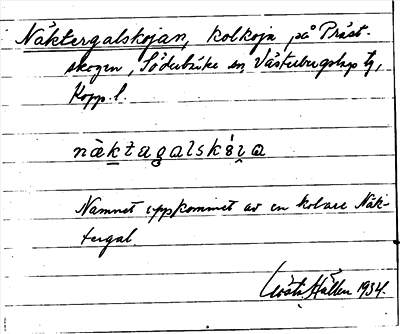 Näktergalskojan, kolkoja på Präst-
skogen, Söderbärke sn, Västerbergslags tg,
Kopp. l.
näktagalskòia
Namnet uppkommet av en kolare Näk-
tergal.
Hållen 1934.